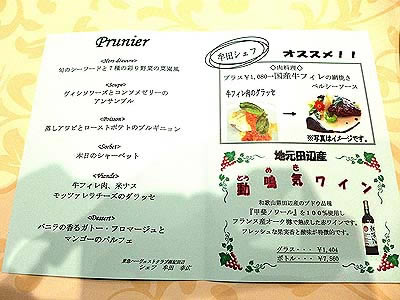 Prunier
<Hors d'œuvre>
旬のシーフードと7種の彩り野菜の菜園風
<Soupe>
ヴィシソワーズとコンソメゼリーの
アンサンブル
<Poisson>
蒸しアワビとローストポテトのブルギニョン
<Sorbet>
本日のシャーベット
<Viande>
牛フィレ肉、米ナス
モッツァレラチーズのグラッセ
<Dessert>
バニラの香るガトー・フロマージュと
マンゴーのパルフェ
シェフ 牟田 幸広
牟田シェフ オススメ!!
◇肉料理◇
プラス¥1,080→国産牛フィレの網焼き
ペルシーソース
牛フィレ肉のグラッセ
※写真はイメージです。
地元田辺産
どう め き
動鳴気ワイン
和歌山県田辺産のブドウ品種
『甲斐ノワール』を100%使用し
フランス産オーク樽で熟成した赤ワインです。
フレッシュな果実香と酸味が特徴的です。
グラス・・・¥1,404
ボトル・・・¥7,560